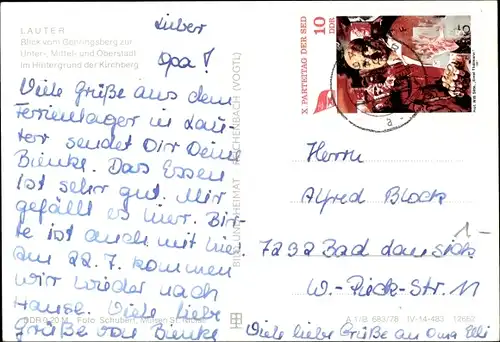 LAUTER
Blick vom Gonningsberg zur
Unter-, Mittel- und Oberstadt
Im Hintergrund der Kirchberg
Lieber
Opa!
Viele Grüße aus dem
Ferienlager in Lau-
ter sendet Dir Deine
Bienke. Das Essen
ist sehr gut. Mir
gefällt es hier. Bir-
te ist auch mit hier.
am 22.7. kommen
wir wieder nach
Hause. Viele liebe
Grüße von Bienke
DDR 0,20 M Foto: Schubert,
BILD UND HEIMAT REICHENBACH (VOGTL)
X. PARTEITAG DER SED
10
DDR
Herrn
Alfred Block
7232 Bad Lausick
W.-Pieck-Str. 11
1-
A 1/B 683/78 IV-14-483 17652
Viele liebe Grüße an Oma Elli